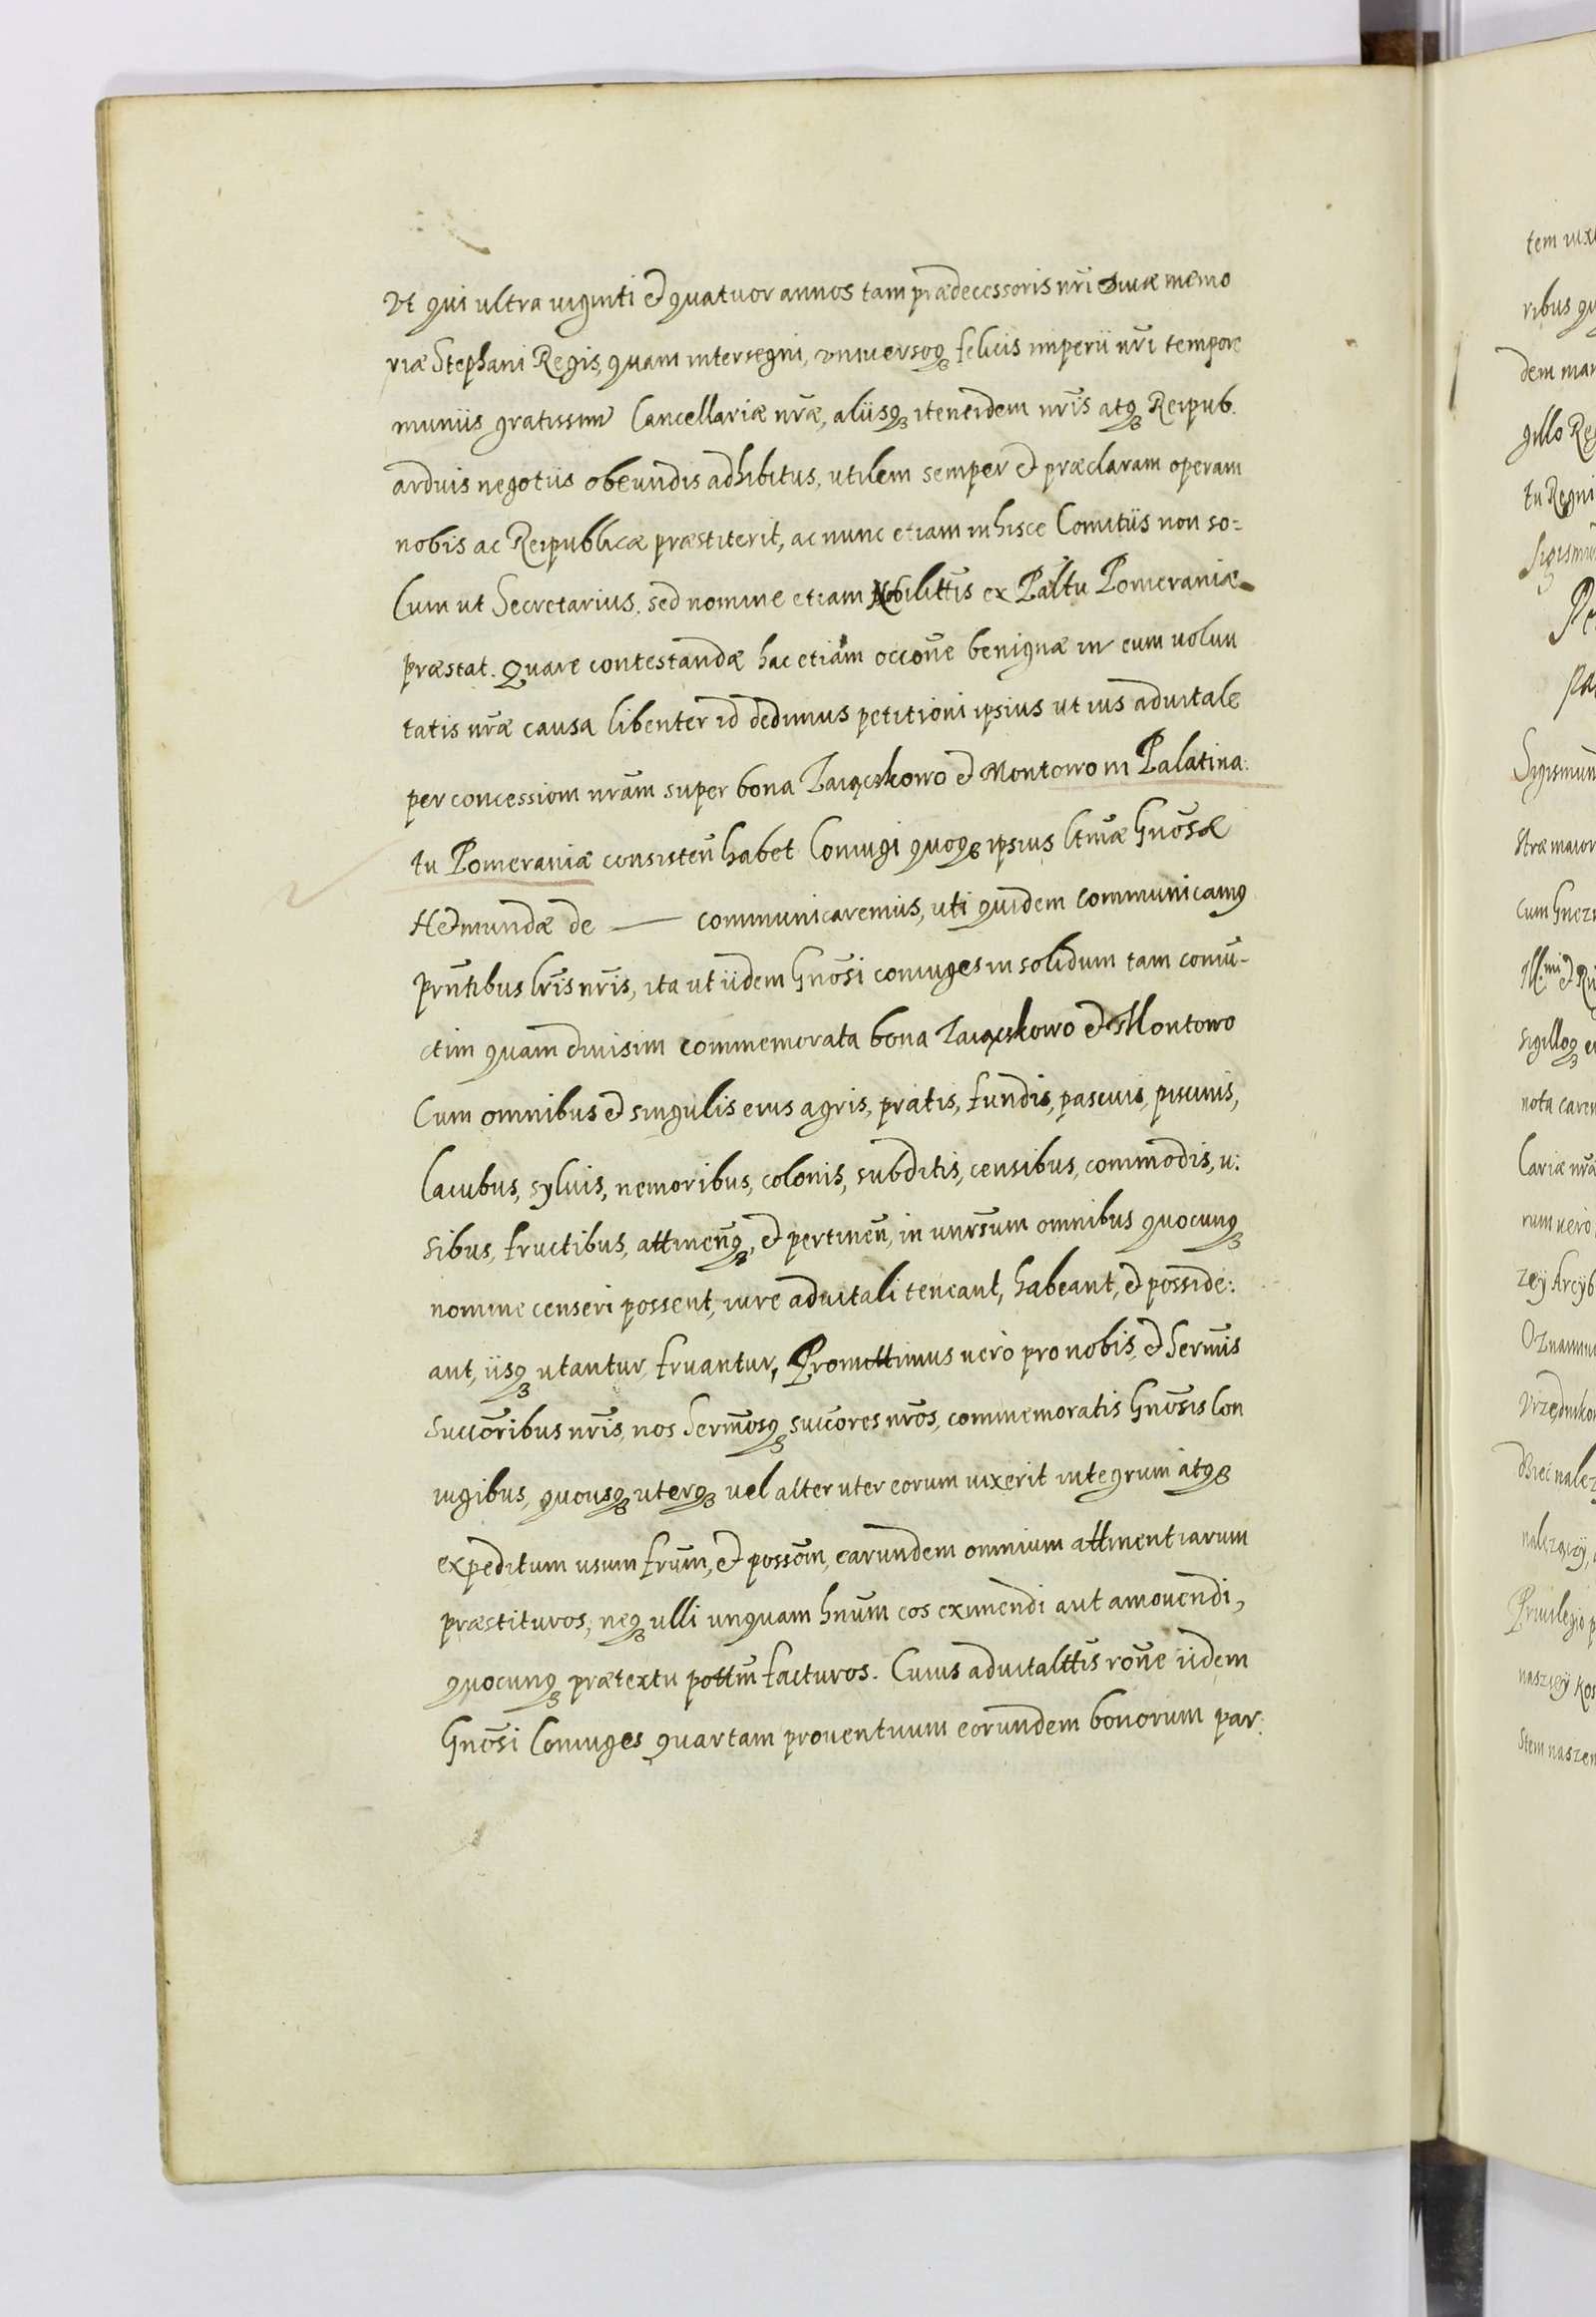 Vt qui ultra viginti et quatuor annos tam prædecessoris nr̄i diuæ memo
riæ Stephani Regis, quam interregni, vniuersoq₃ felicis imperii nr̄i tempore
muniis gratissim Cancellariæ nr̄æ, aliisq₃ itenerdem nr̄is atq₃ Reipub.
arduis negotiis obeundis adhibitus, utilem semper et præclaram operam
nobis ac Reipublicæ præstiterit, ac nunc etiam in hisce Comitiis non so=
lum ut Secretarius, sed nomine etiam Nobilitt̄is ex Pal̄tu Pomeraniæ
præstat. Quare contestandæ hac etiam occōne benignæ in eum volun
tatis nr̄æ causa libenter id dedimus petitioni ipsius ut ius aduitale
per concessiom nr̄am super bona Zaiączkowo et Montowo in Palatina:
tu Pomeraniæ consisten̄ habet Coniugi quoq₃ ipsius ltmæ Gnōsæ
Hedmundæ de — communicaremus, uti quidem communicamus
prn̄tibus lr̄is nr̄is, ita ut iidem Gnōsi coniuges in solidum tam coniū-
ctim quam diuisim commemorata bona Zaiączkowo et Montowo
Cum omnibus et singulis eius agris, pratis, fundis, pascuis, piscinis,
lacubus, syluis, nemoribus, colonis, subditis, censibus, commodis, u:
sibus, fructibus, attinen̄q₃, et pertinen̄, in unr̄sum omnibus quocunq₃
nomine censeri possent, iure aduitali teneant, habeant, et posside:
ant, iisq₃ utantur fruantur, Promittimus vero pro nobis, et Serm̄is
succōribus nr̄is, nos Serm̄osq₃ succōres nr̄os, commemoratis Gnōsis Con
iugibus, quousq₃ uterq₃ vel alteruter eorum uixerit integrum atq₃
expeditum usumfrum̄, et possōm̄, earundem omnium attinentiarum
præstituros, neq₃ ulli unquam hn̄um eos eximendi aut amouendi,
quocunq₃ prætextu pottm̄ facturos. Cuius aduitaltt̄is rōne iidem
Gnōsi Coniuges quartam prouentuum eorundem bonorum par: